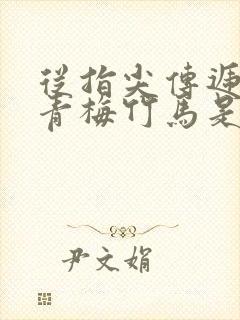 從指尖傳遞
青梅竹馬是
尹文娟